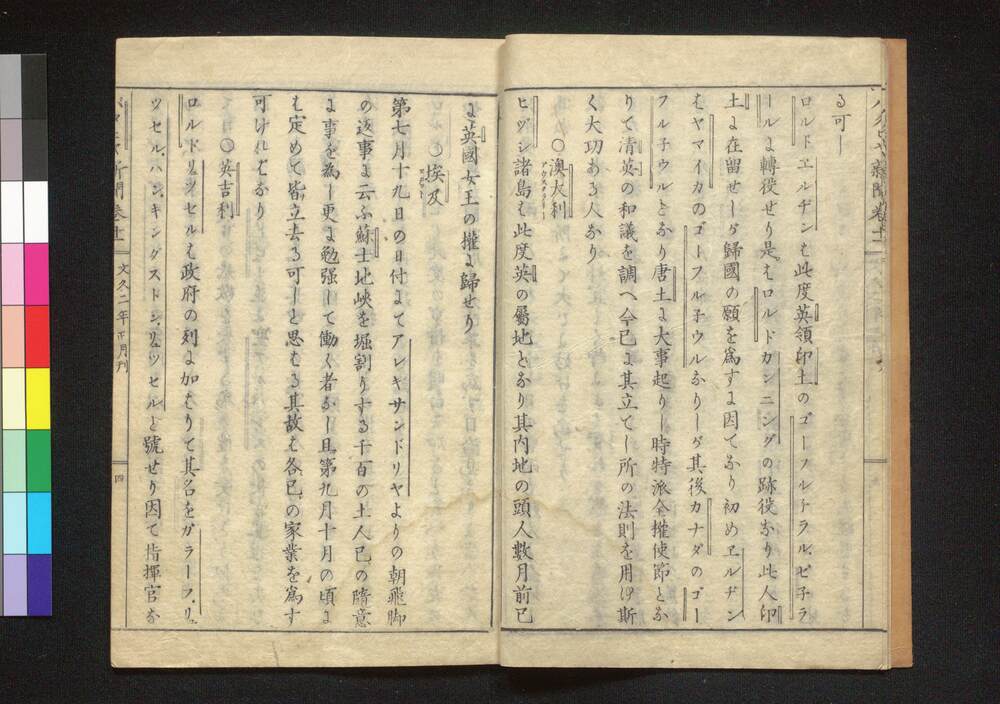 る可し
ロルドエルヂンも此度英領印土のゴーフルチラルゼ子ラ
ールに轉役せり是はロルドカンニングの跡役なり此人印
土に在留せしが歸國の願を爲すに因てなり初めエルヂン
はヤマイカのゴーフル子ウルなりしが其後カナダのゴー
フル子ウルとなり唐土に大事起りし時特派全權使節とな
りて清英の和議を調へ今已に其立てし所の法則を用ひ斯
く大功ある人なり
〇澳太利
ヒヅシ諸島も此度英の屬地となり其内地の頭人數月前已
に英國女王の權に歸せり
〇埃及
第七月十九日の日付にてアレキサンドリヤよりの朝飛脚
の返事に云ふ蘇士地峽を堀割りする千百の土人已の隨意
に事を爲し更に勉强して働く者なし且第九月十月の頃に
も定めて皆立去る可しと思はる其故は各已の家業を爲す
可ければなり
〇英吉利
ロルドリッセルも政府の列に加はりて其名をガラーフ、リュ
ツセル、ハン、キングストン、リュツセルと號せり因て指揮官な
新聞卷十
文久二年正月刊
四